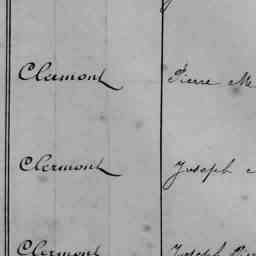 Clermont Pierre M
Clermont Joseph
Clermont Joseph